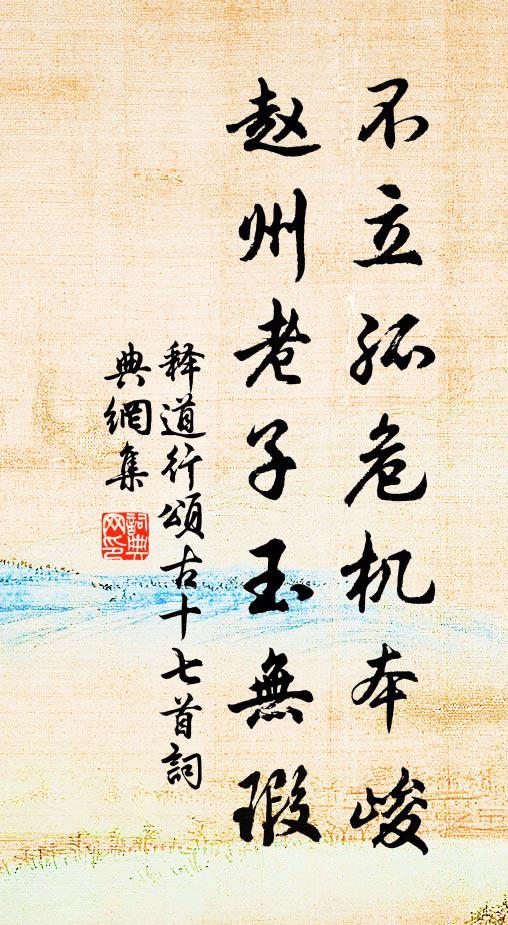 不立孤危机本峻
赵州老子玉無瑕
释道行頌古十七首詞
典網集
詞典网印